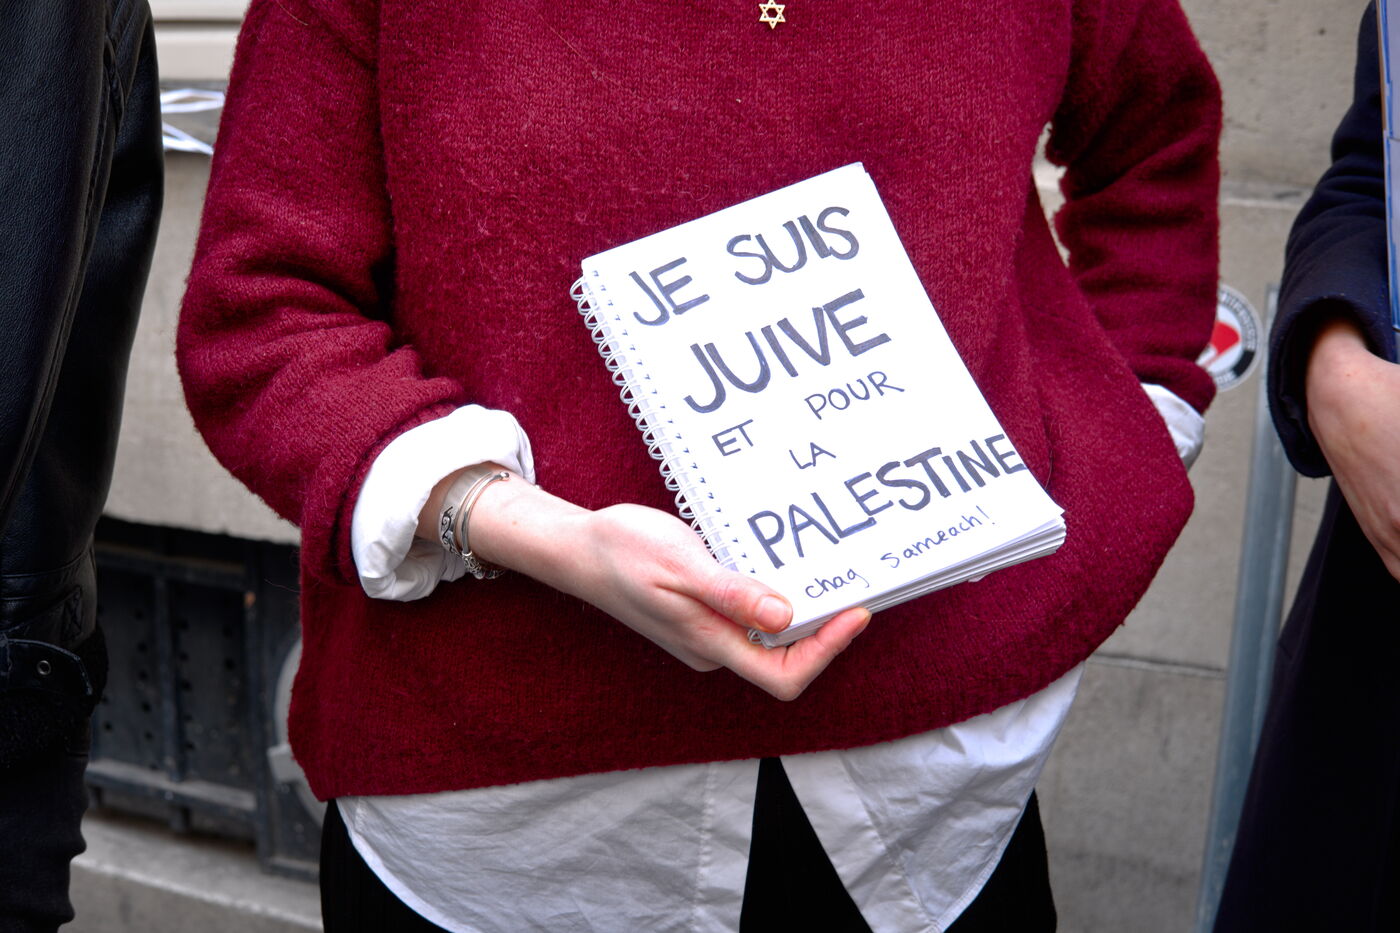 JE SUIS
JUIVE
ET POUR
LA
PALESTINE
chag sameach!